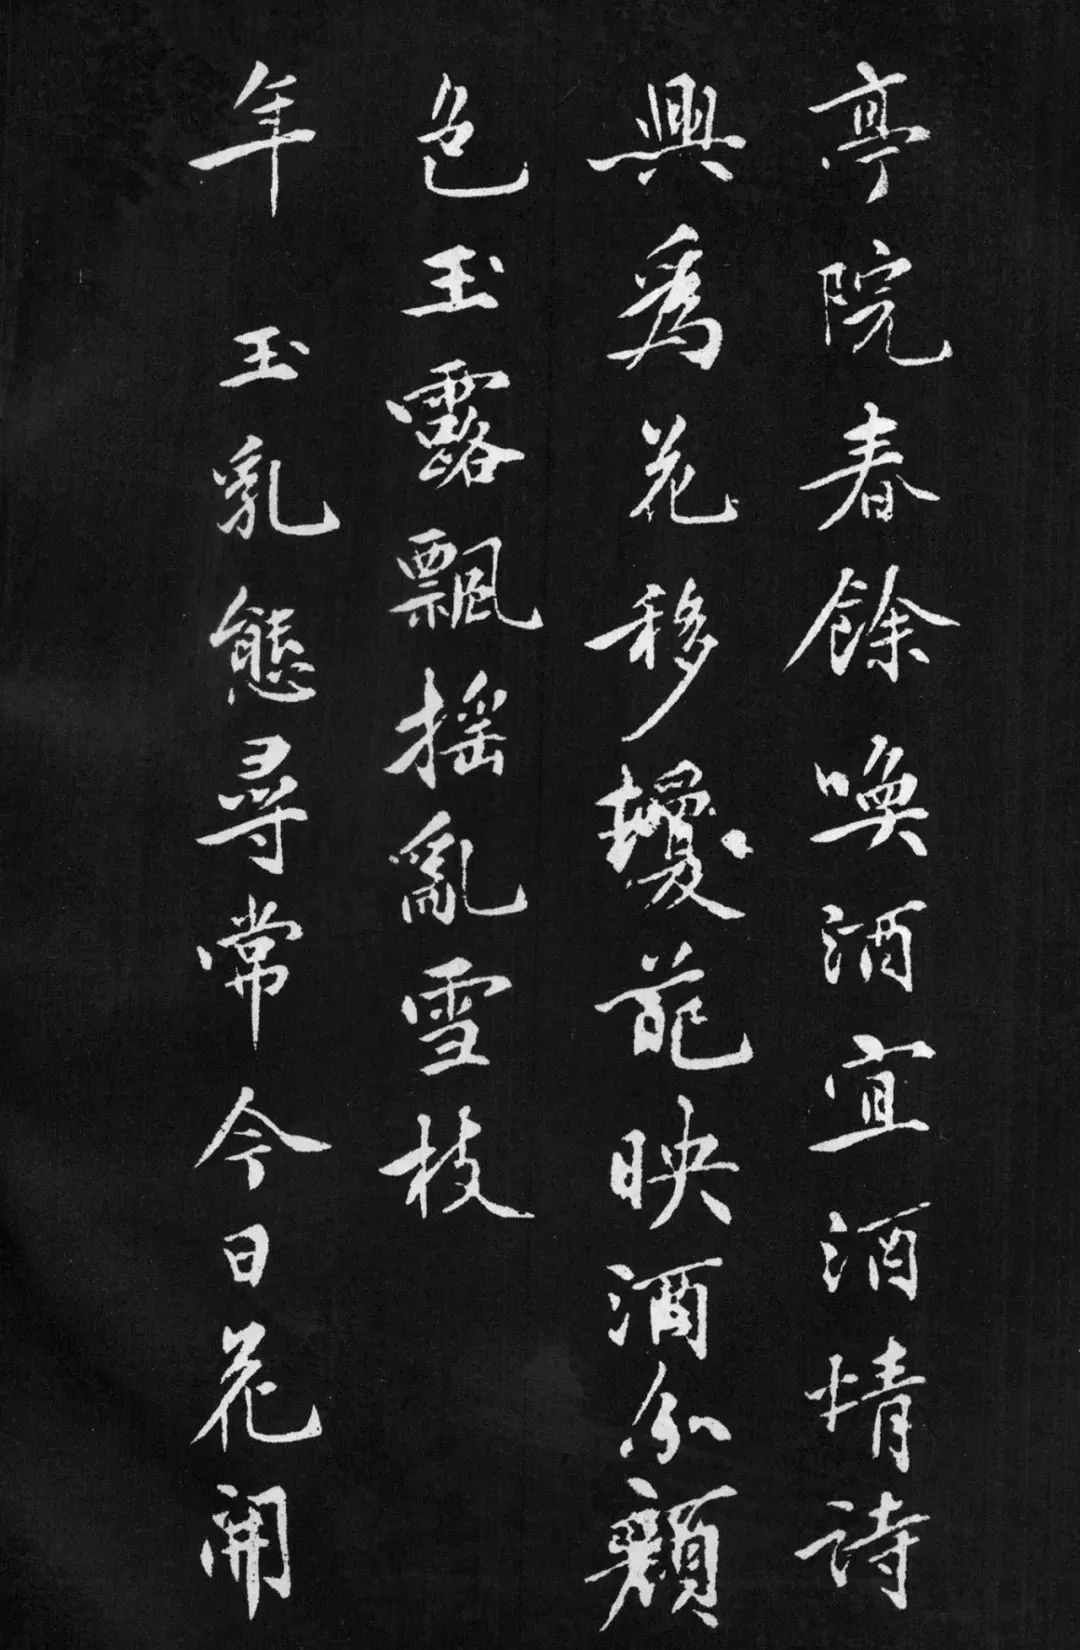 亭院春餘喚酒宜酒情詩
興為花移攙葩映酒分顏
色玉露飄搖亂雪枝
年 玉乳態尋常今日花開